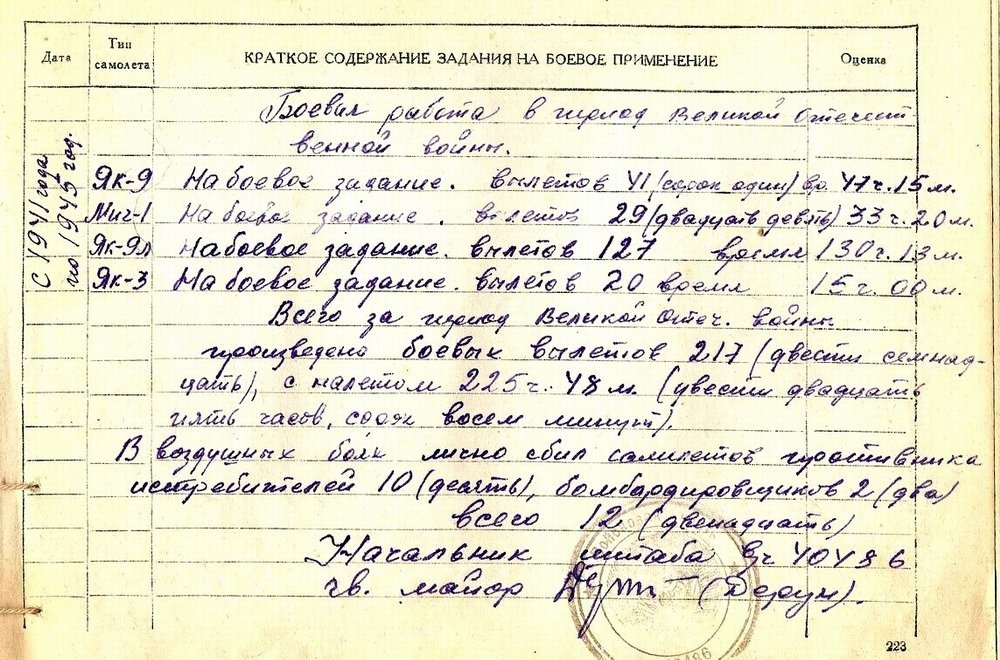 Дата
Тип самолета
КРАТКОЕ СОДЕРЖАНИЕ ЗАДАНИЯ НА БОЕВОЕ ПРИМЕНЕНИЕ
Оценка
Боевая работа в период Великой Отечест
венной войны.
С 1941 года
по 1945 год.
Як-9 На боевое задание. вылетов 41 (сорок один) вр. 47 ч. 15 м.
Миг-1 На боевое задание. вылетов 29 (двадцать девять) 33 ч. 20 м.
Як-9л На боевое задание. вылетов 127 время 130 ч. 13 м.
Як-3 На боевое задание. вылетов 20 время 15 ч. 00 м.
Всего за период Великой Отеч. войны
произведено боевых вылетов 217 (двести семнад-
цать), с налетом 225 ч. 48 м. (двести двадцать
пять часов, сорок восем минут).
В воздушных боях лично сбил самолетов противника
истребителей 10 (десять), бомбардировщиков 2 (два)
всего 12 (двенадцать)
Начальник штаба вч 40486
гв. майор (Дерун).
223